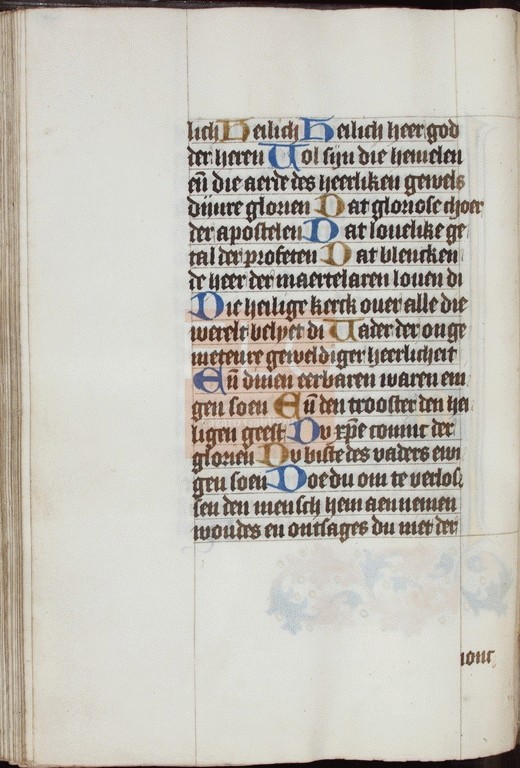 lich Heilich Heilich heer god
der heren Uol sijn die hemelen
eñ die aerde des heerliken gewels
dijnre glorien Dat gloriose choer
der apostelen Dat louelike ge
tal der profeten Dat blencken
de heer der maertelaren louen di
Die heilige kerck ouer alle die
werelt belyet di Uader der onge
meteure geweldiger heerlicheit
Eñ dinen eerbaren waren ein
gen soen Eñ den trooster den hei
ligen geest Du xpē coninc der
glorien Du biste des vaders ewi
gen soen Doe du om te verlos
sen den mensch hem aennemen
woudes en ontsages du niet der
ionc